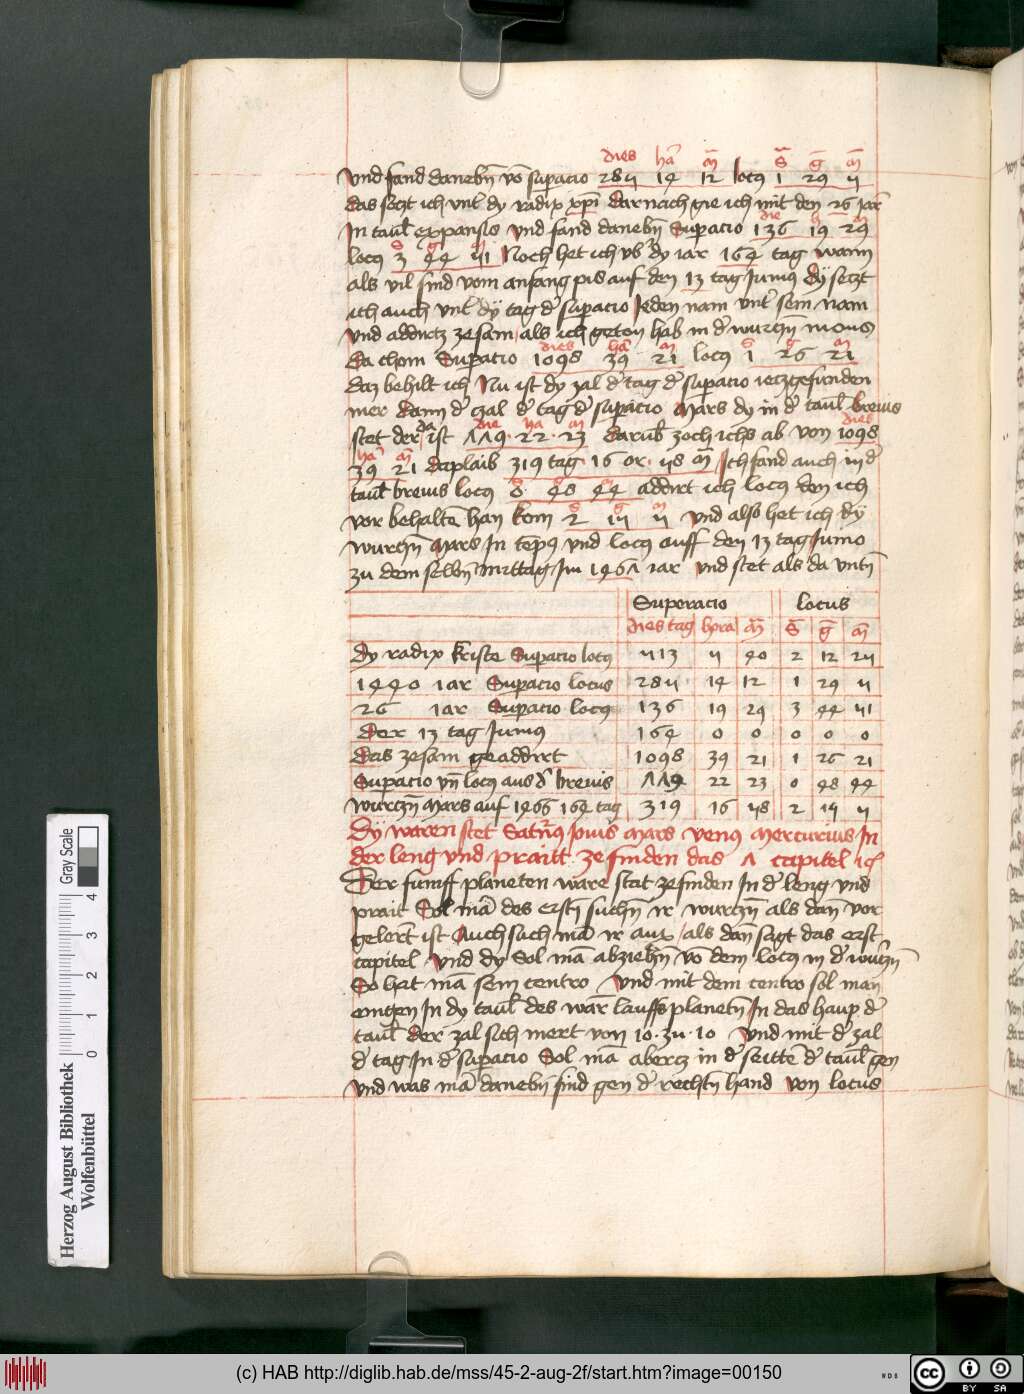 dies hā m̄ S̄ ḡ m̄
vnd fand danebn̄ vō supacio 2811 14 12 locꝯ 1 29 11
das seczt ich vnt̄ dy radix xp̄i darnach gie ich mit den 26 jar
die h m
In taul̄ expansis vnd fand danebn̄ Supacio 136 19 29
s g m
locꝯ 3 44 41 Noch het ich vb̄ dy iar 164 tag wann
als vil sind vom anfang pis auf den 13 tag Iunius dÿ seczt
ich auch vnt̄ dÿ tag d̄ supacio Jeden nam vnt̄ sein nam
vnd addirtz zesam als ich geton hab in d̄ wurczn̄ motus
dies hā m s g m
da chom Supacio 1098 39 21 locꝯ 1 26 21
daz behilt ich Nu ist dy zal d̄ tag d̄ supacio ieczgefunden
mer dann d̄ czal d̄ tag d̄ supacio Mars dy in d̄ taul̄ breuis
da die ha m dies
stet der ist 779 · 22 · 23 darub̄ zoch ichs ab von 1098
ha m
39 21 daplaib 319 tag · 16 or · 58 m̄ Ich fand auch in d̄
s g m
taul̄ breuis locꝯ 0 · 48 44 addirt ich locꝯ den ich
s g m
vor behaltē han kom 2 14 11 vnd also het ich dÿ
wurczn̄ Mars In tep̄ꝯ vnd locꝯ auff den 13 tag Iunio
zu dem selbn̄ mittag Im 1467 iar vnd stet als da vntn̄
Superacio locus
dies tag hora m̄ S̄ ḡ m̄
dy radix kriste Supacio locꝯ 1113 11 40 2 12 24
1440 iar Supacio locus 2811 14 12 1 29 11
26 iar Supacio locꝯ 136 19 29 3 44 41
Der 13 tag Iunius 164 0 0 0 0 0
das zesam geaddirt 1098 39 21 1 26 21
Supacio vn̄ locꝯ aus d̄ breuis 779 22 23 0 48 44
wurczn̄ Mars auf 1466 164 tag 319 16 58 2 14 11
Dÿ waren stet Satn̄ꝯ Iouis Mars venꝯ Mercurius In
der leng vnd prait ze finden das 7 capitel
Der funff planeten ware stat ze finden In d̄ leng vnd
prait Sol mā des erstn̄ suchn̄ ir wurczn̄ als dan̄ vor
gelert ist Auch such mā ir aux als dan̄ sagt das erst
capitel vnd dy Sol mā abziehn̄ vō dem locꝯ in d̄ wurczn̄
So hat mā sein centro vnd mit dem centro sol man
eingen In dy taul̄ des warn̄ lauffs planetn̄ In das haup d̄
taul̄ der zal sich mert von 10 · zu · 10 vnd mit d̄ zal
d̄ tag In d̄ supacio Sol mā abercz in d̄ seitte d̄ taul̄ gen
vnd was mā danebn̄ find gen d̄ rechtn̄ hand von locus
Herzog August Bibliothek
Wolfenbüttel
0 1 2 3 4
Gray Scale
(c) HAB http://diglib.hab.de/mss/45-2-aug-2f/start.htm?image=00150
WDB
cc BY SA